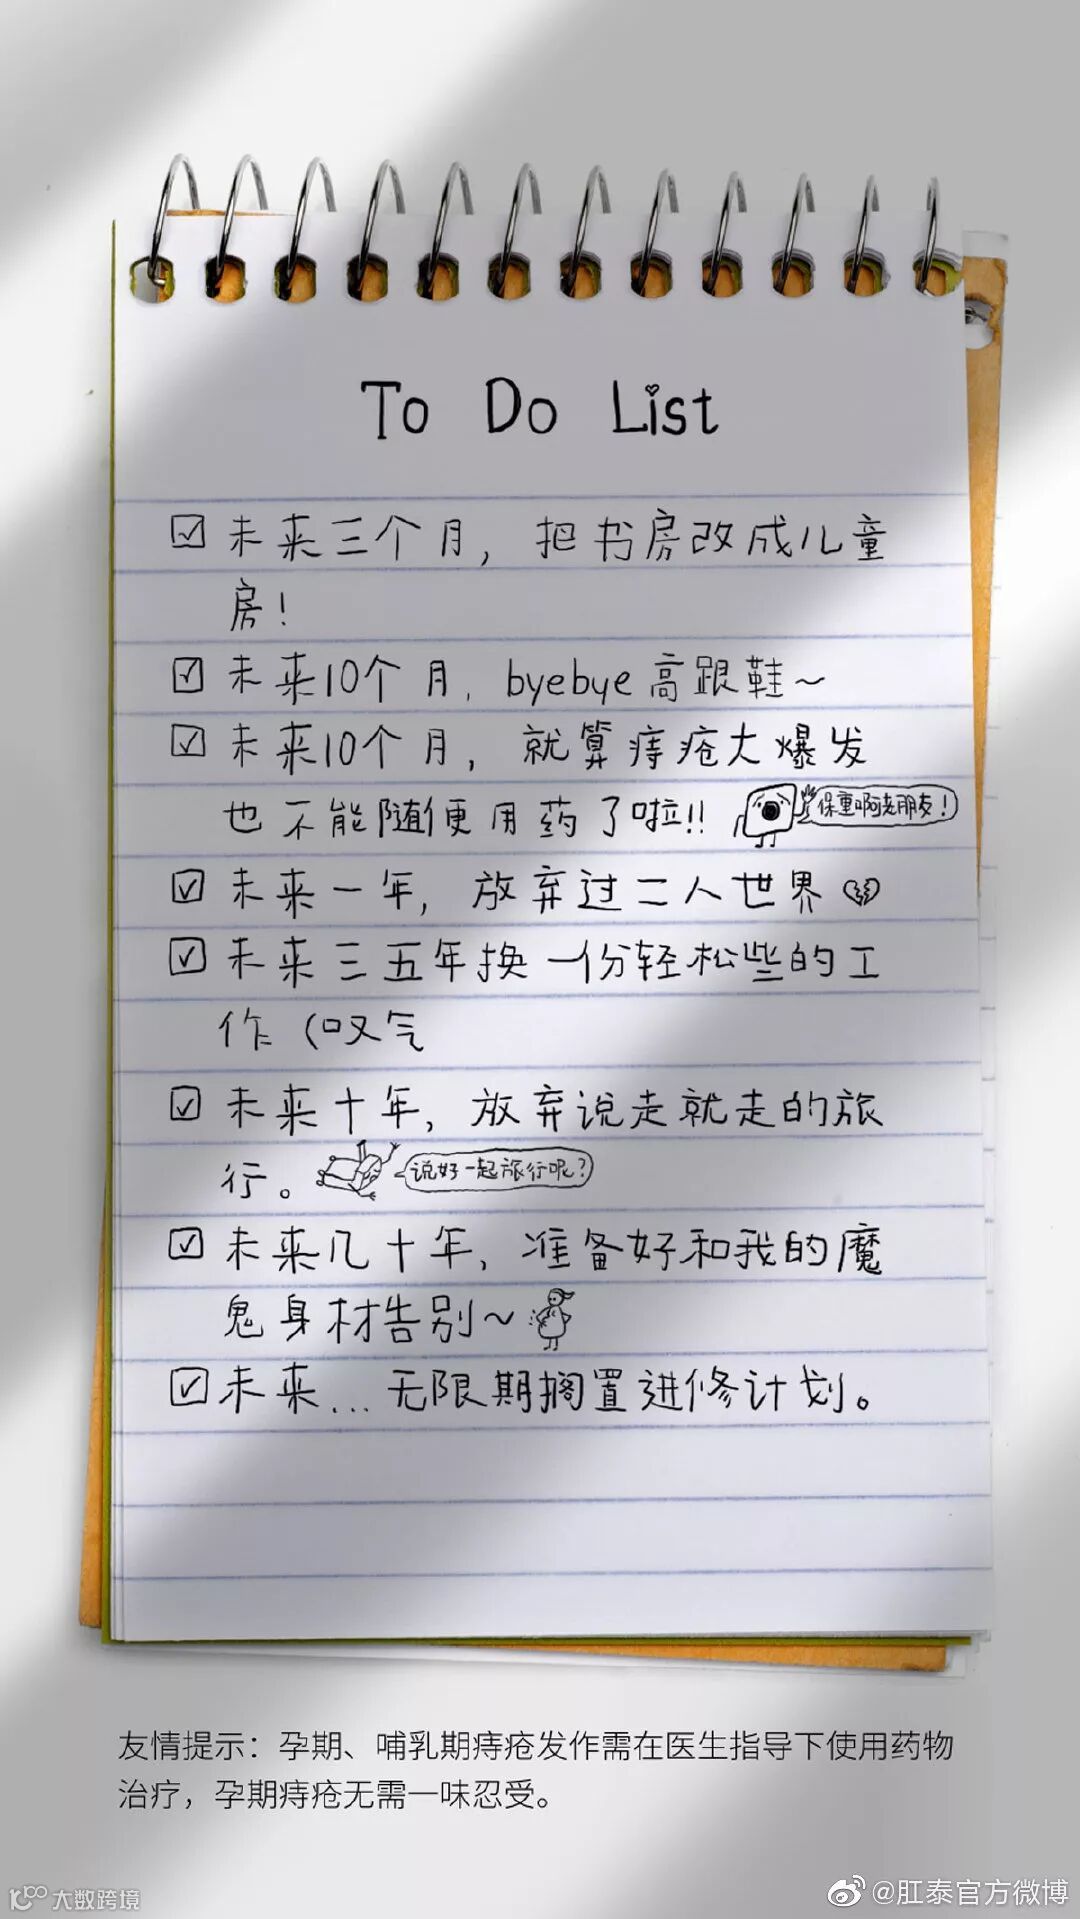 To Do List
未来三个月，把书房改成儿童
房！
未来10个月，byebye高跟鞋～
未来10个月，就算痔疮大爆发
也不能随便用药了啦！！
保重啊老朋友！
未来一年，放弃过二人世界
未来三五年换一份轻松些的工
作（叹气
未来十年，放弃说走就走的旅
行。
说好一起旅行呢？
未来几十年，准备好和我的魔
鬼身材告别～
未来...无限期搁置进修计划。
友情提示：孕期、哺乳期痔疮发作需在医生指导下使用药物
治疗，孕期痔疮无需一味忍受。
大数跨境
@肛泰官方微博